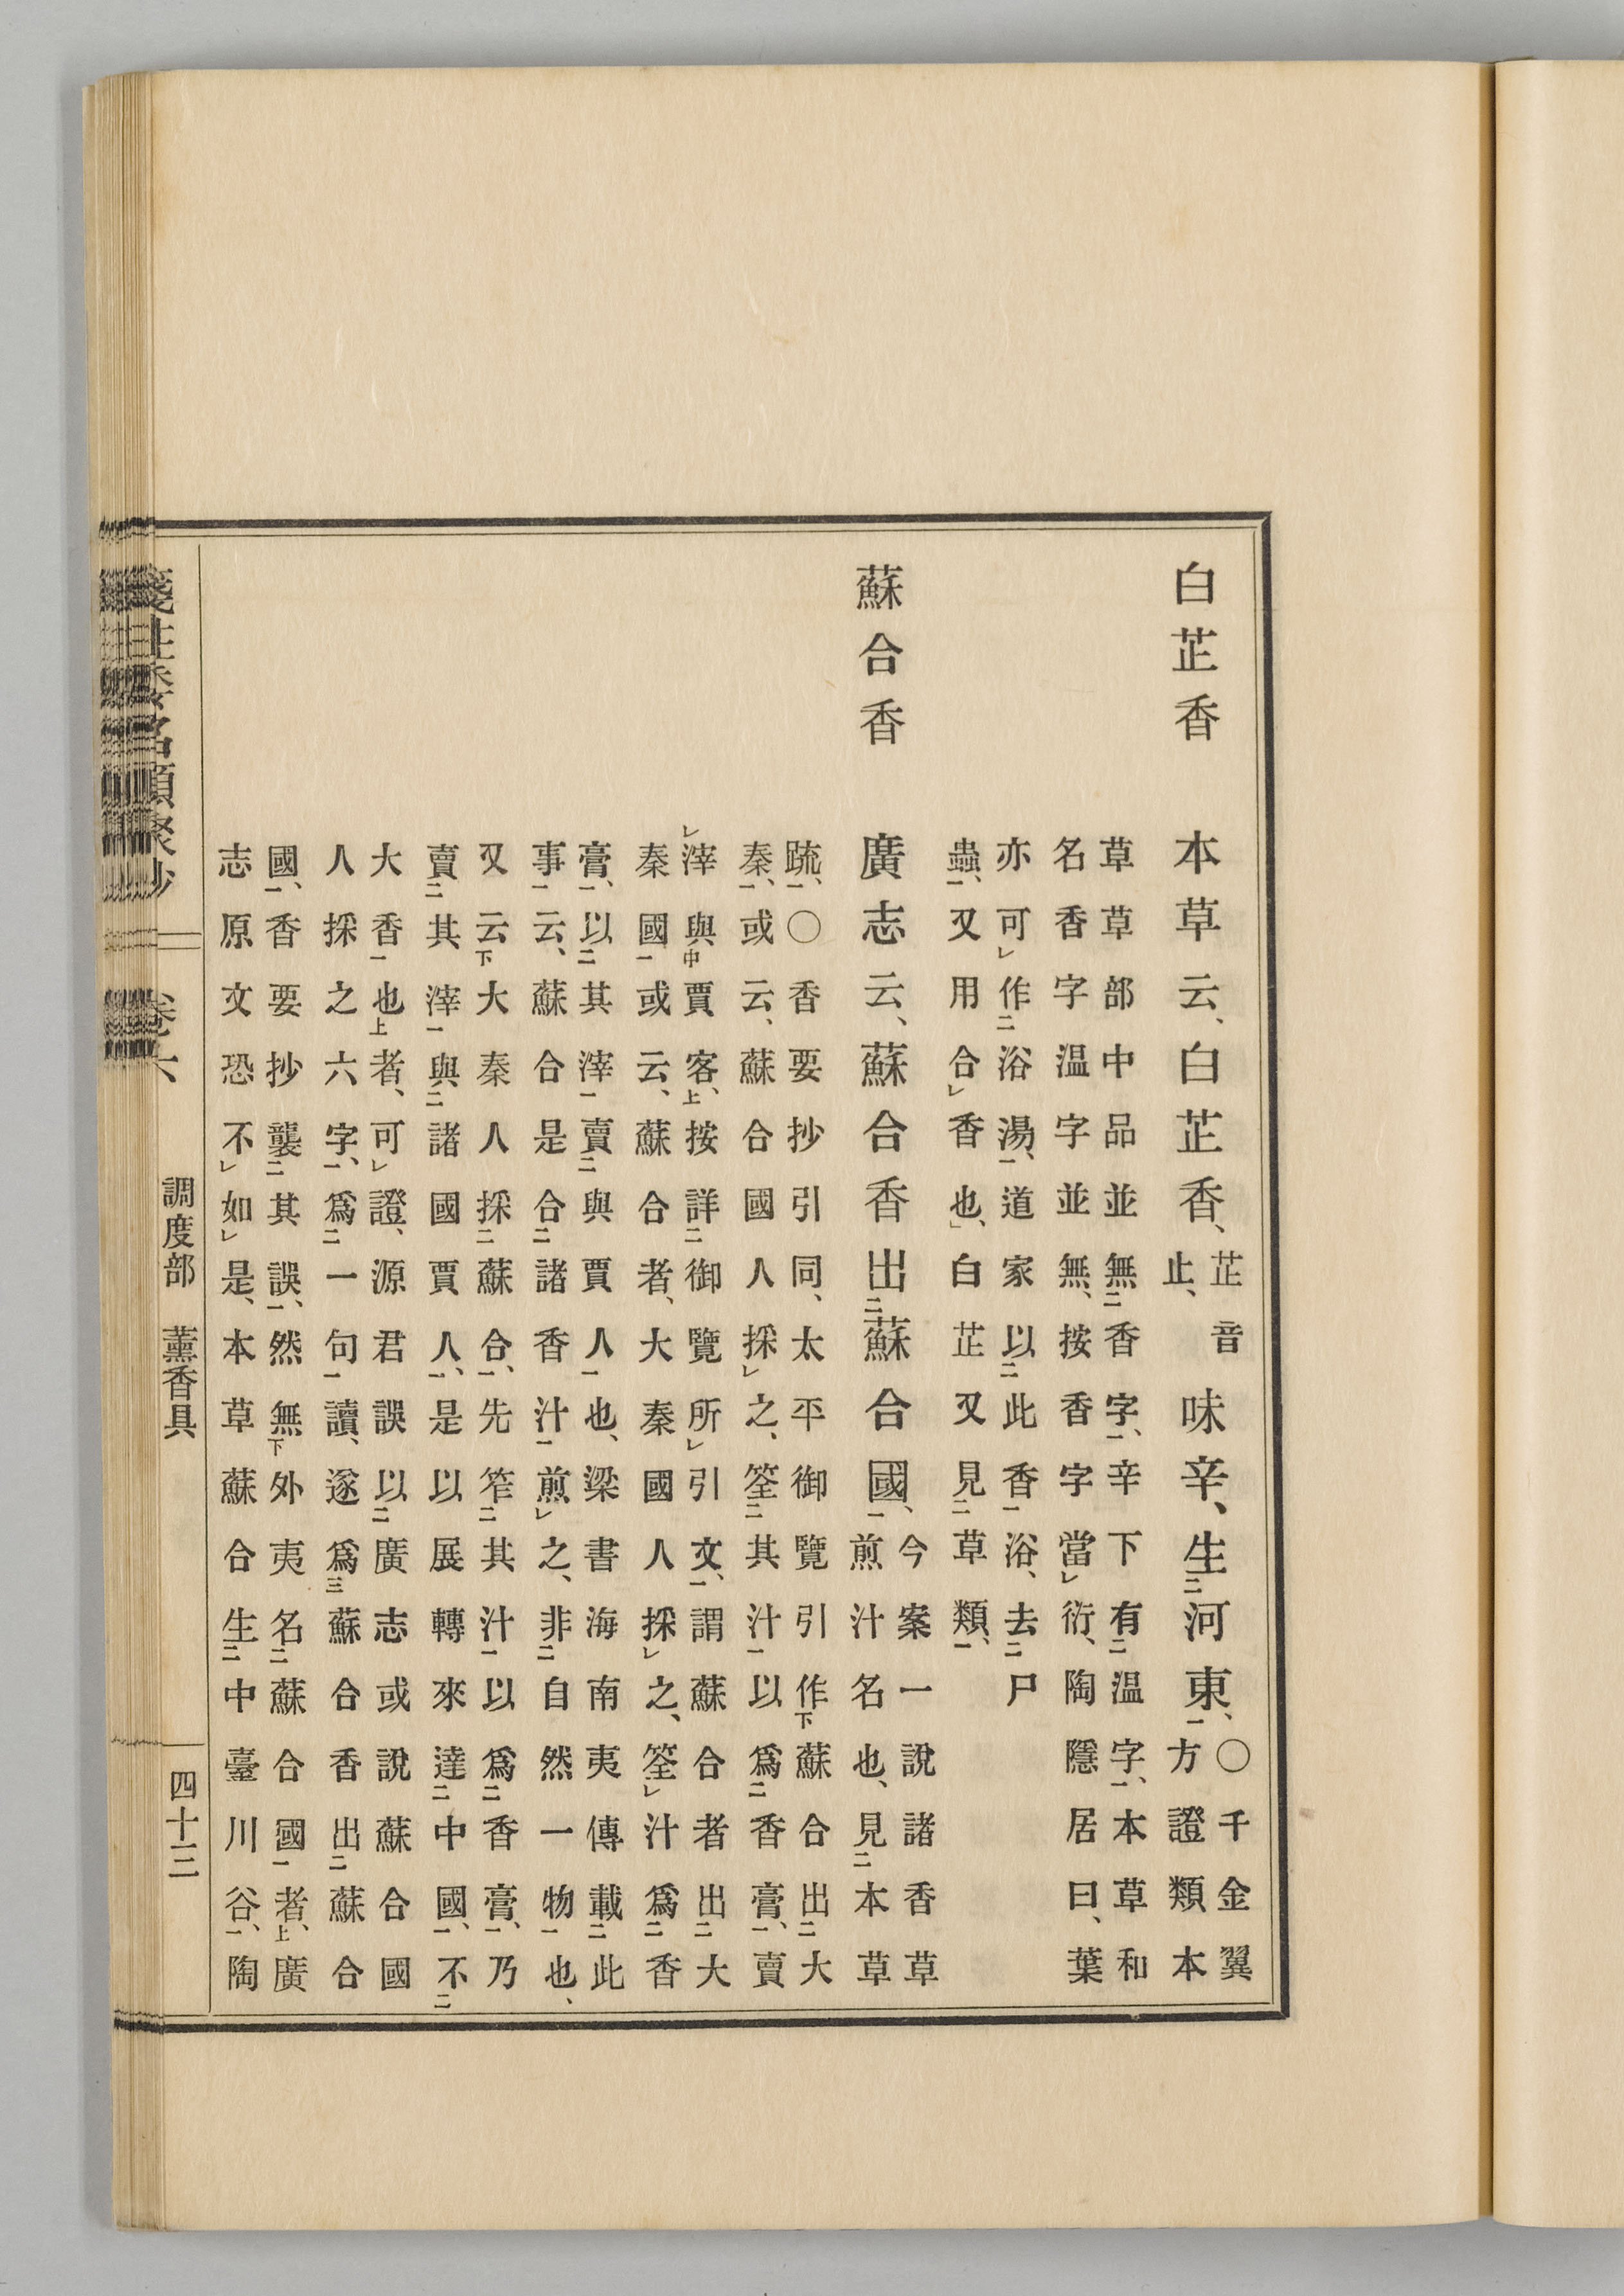 白芷香　本草云、白芷香、
芷音
止、
味辛、生河東、
〇千金翼
方證類本
草草部中品並無香字、辛下有温字、本草和
名香字温字並無、按香字當衍、陶隱居曰、葉
亦可作浴湯、道家以此香浴、去尸
蟲、又用合香也、白芷又見草類、
蘇合香　廣志云、蘇合香出蘇合國、
今案一說諸香草
煎汁名也、見本草
疏、〇香要抄引同、太平御覽引作蘇合出大
秦、或云、蘇合國人採之、筌其汁以爲香膏、賣
滓與賈客、按詳御覽所引文、謂蘇合者出大
秦國或云、蘇合者、大秦國人採之、筌汁爲香
膏、以其滓賣與賈人也、梁書海南夷傳載此
事云、蘇合是合諸香汁煎之、非自然一物也、
又云大秦人採蘇合、先笮其汁以爲香膏、乃
賣其滓與諸國賈人、是以展轉來達中國、不
大香也者、可證、源君誤以廣志或說蘇合國
人採之六字、爲一句讀、遂爲蘇合香出蘇合
國、香要抄襲其誤、然無外夷名蘇合國者、廣
志原文恐不如是、本草蘇合生中臺川谷、陶
箋注倭名類聚抄　卷六　調度部　薰香具　四十三